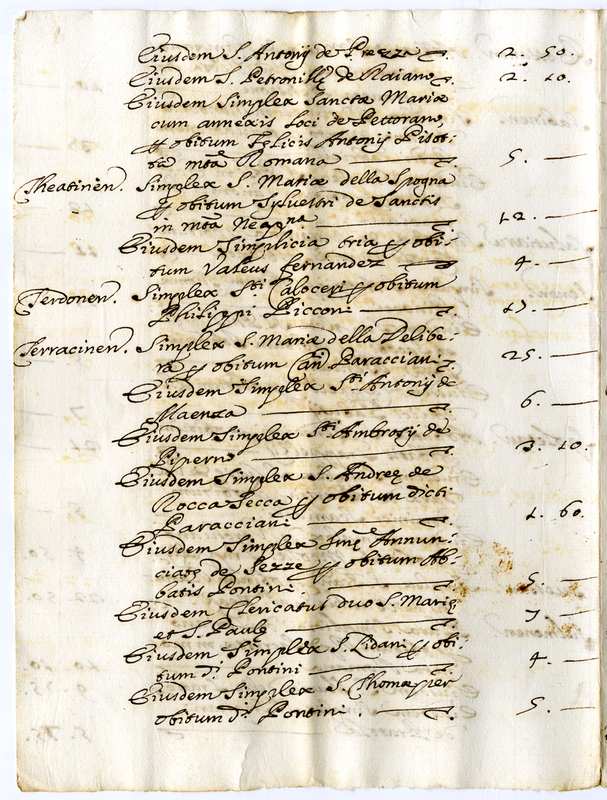 Eiusdem S. Antonij de Prezza 2. 50.
Eiusdem S. Petronillę de Raiano 2. 10.
Eiusdem Simplex Sanctæ Mariæ
cum annexis loci de Pettorano
ꝑ obitum Felicis Antonij Pisot:
tæ mtã Romana 5. —
Theatinen. Simplex S. Mariæ della Spogna
ꝑ obitum Syluestri de Sanctis
in mtã Neapna 12. —
Eiusdem Simplicia tria ꝑ obi:
tum Valeus fernandez 4. —
Terdonen. Simplex Sti Caloceri ꝑ obitum
Philippi Picconi 17. —
Terracinen. Simplex S. Mariæ della Delibe:
ra ꝑ obitum Can. Paracciani 25. —
Eiusdem Simplex Sti Antonij de
Maenza 6. —
Eiusdem Simplex Sti Ambrosij de
Piperno 3. 10.
Eiusdem Simplex S. Andreę de
Rocca Secca ꝑ obitum dicti
Paracciani 1. 60.
Eiusdem Simplex Smę Annun:
ciatę de Sezze ꝑ obitum Ab:
batis Pontini 5. —
Eiusdem Clericatus duo S. Marię
et S. Paulę 7 —
Eiusdem Simplex S. Lidani ꝑ obi:
tum di Pontini 4. —
Eiusdem Simplex S. Thomæ per
obitum di Pontini. 5. —